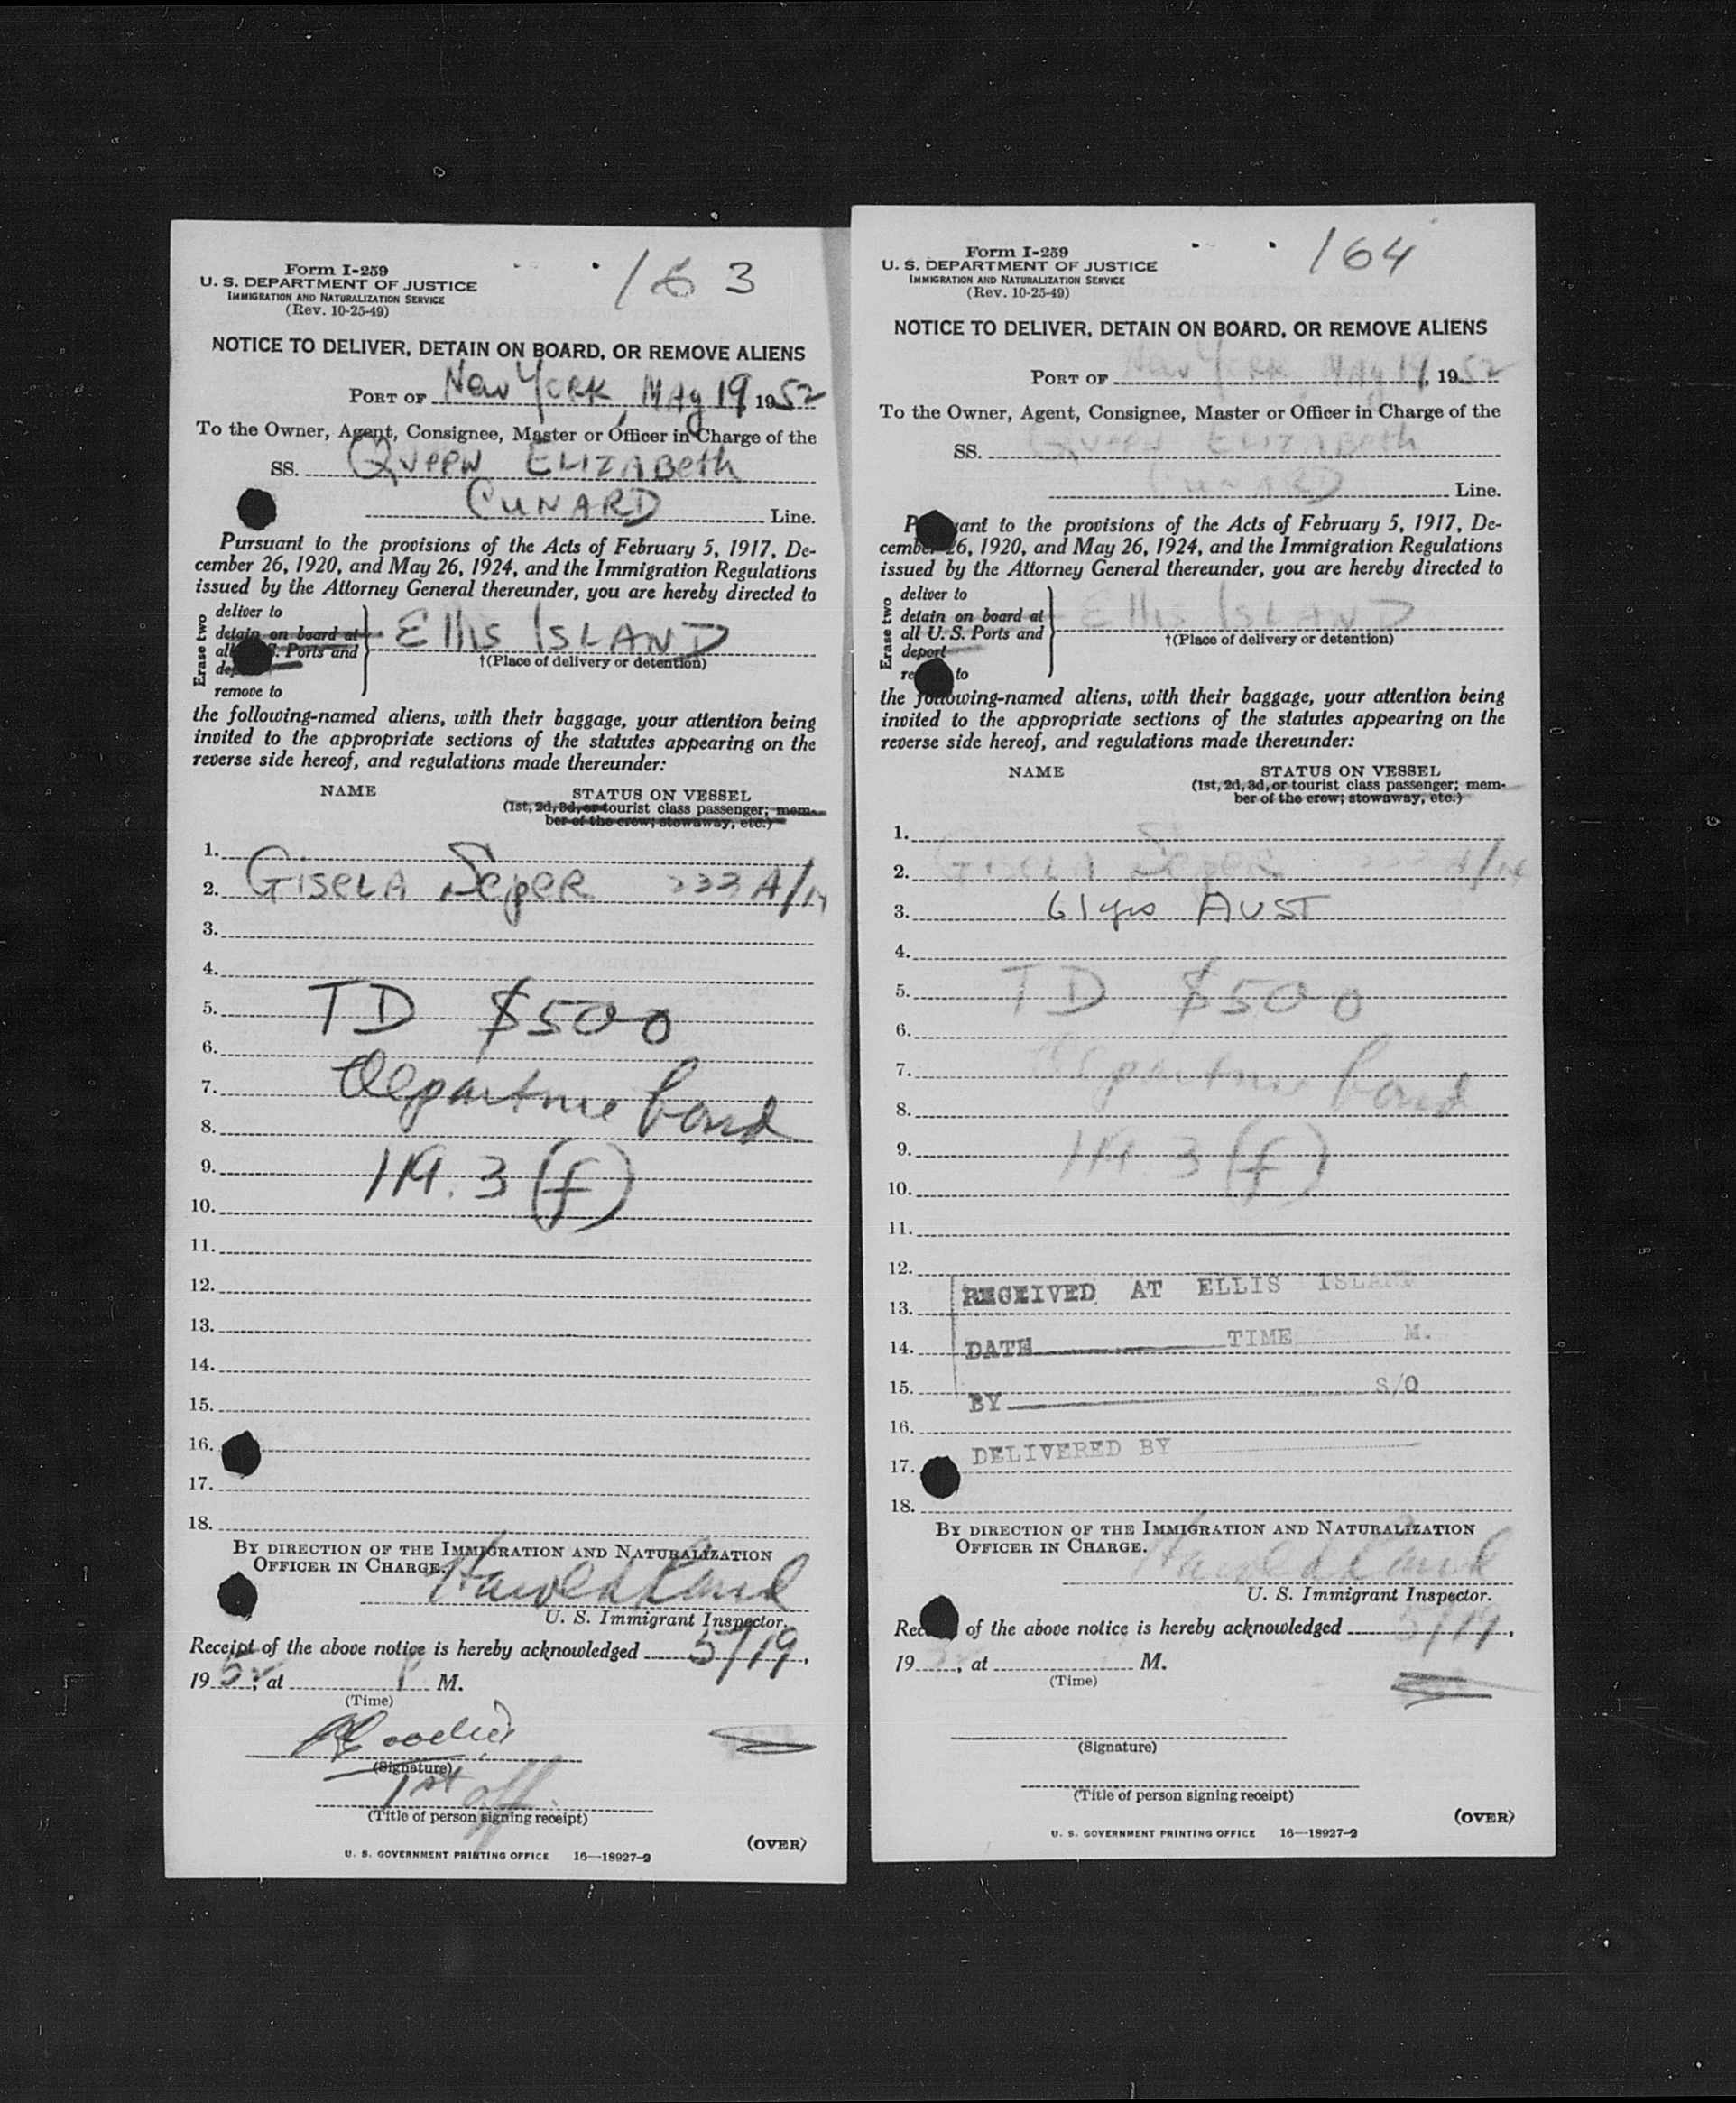 163
Form I-259
U. S. DEPARTMENT OF JUSTICE
IMMIGRATION AND NATURALIZATION SERVICE
(Rev. 10-25-49)
NOTICE TO DELIVER, DETAIN ON BOARD, OR REMOVE ALIENS
PORT OF New York, May 19 1952
To the Owner, Agent, Consignee, Master or Officer in Charge of the
SS. Queen Elizabeth
CUNARD Line.
Pursuant to the provisions of the Acts of February 5, 1917, De-
cember 26, 1920, and May 26, 1924, and the Immigration Regulations
issued by the Attorney General thereunder, you are hereby directed to
Erase two
deliver to
detain on board at
all U. S. Ports and
deport
remove to
Ellis Island
†(Place of delivery or detention)
the following-named aliens, with their baggage, your attention being
invited to the appropriate sections of the statutes appearing on the
reverse side hereof, and regulations made thereunder:
NAME STATUS ON VESSEL
(1st, 2d, 3d, or tourist class passenger; mem-
ber of the crew; stowaway, etc.)
1.
2. Gisela Seper 233 A/14
3.
4.
5. TD $500
6.
7. departure bond
8.
9. 119.3 (f)
10.
11.
12.
13.
14.
15.
16.
17.
18.
BY DIRECTION OF THE IMMIGRATION AND NATURALIZATION
OFFICER IN CHARGE.
U. S. Immigrant Inspector.
Receipt of the above notice is hereby acknowledged 5/19,
1952, at P M.
(Time)
(Signature)
1st off.
(Title of person signing receipt)
(OVER)
U. S. GOVERNMENT PRINTING OFFICE 16—18927-2
164
Form I-259
U. S. DEPARTMENT OF JUSTICE
IMMIGRATION AND NATURALIZATION SERVICE
(Rev. 10-25-49)
NOTICE TO DELIVER, DETAIN ON BOARD, OR REMOVE ALIENS
PORT OF New York, May 19, 1952
To the Owner, Agent, Consignee, Master or Officer in Charge of the
SS. Queen Elizabeth
CUNARD Line.
Pursuant to the provisions of the Acts of February 5, 1917, De-
cember 26, 1920, and May 26, 1924, and the Immigration Regulations
issued by the Attorney General thereunder, you are hereby directed to
Erase two
deliver to
detain on board at
all U. S. Ports and
deport
remove to
Ellis Island
†(Place of delivery or detention)
the following-named aliens, with their baggage, your attention being
invited to the appropriate sections of the statutes appearing on the
reverse side hereof, and regulations made thereunder:
NAME STATUS ON VESSEL
(1st, 2d, 3d, or tourist class passenger; mem-
ber of the crew; stowaway, etc.)
1.
2. Gisela Seper 233 A/14
3. 61 yrs AUST
4.
5. TD $500
6.
7. departure bond
8.
9. 119.3 (f)
10.
11.
12.
RECEIVED AT ELLIS ISLAND
13.
14. DATE TIME M.
15.
BY S/O
16.
DELIVERED BY
17.
18.
BY DIRECTION OF THE IMMIGRATION AND NATURALIZATION
OFFICER IN CHARGE.
U. S. Immigrant Inspector.
Receipt of the above notice is hereby acknowledged 5/19,
19, at M.
(Time)
(Signature)
(Title of person signing receipt)
(OVER)
U. S. GOVERNMENT PRINTING OFFICE 16—18927-2